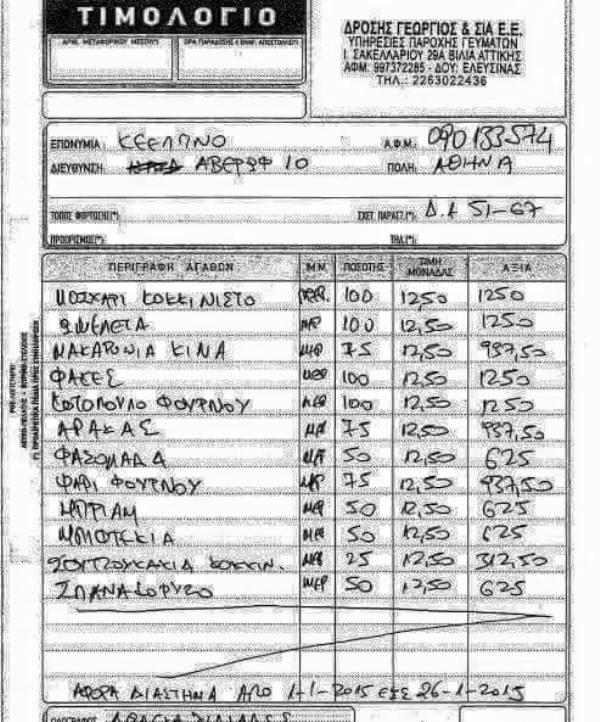 ΤΙΜΟΛΟΓΙΟ
ΑΡΙΘ. ΜΕΤΑΦΟΡΙΚΟΥ ΜΕΣΟΥ(*) ΩΡΑ ΠΑΡΑΔΟΣΗΣ Ή ΕΝΑΡ. ΑΠΟΣΤΟΛΗΣ(*)
ΔΡΟΣΗΣ ΓΕΩΡΓΙΟΣ & ΣΙΑ Ε.Ε.
ΥΠΗΡΕΣΙΕΣ ΠΑΡΟΧΗΣ ΓΕΥΜΑΤΩΝ
Ι. ΣΑΚΕΛΛΑΡΙΟΥ 29Α ΒΙΛΙΑ ΑΤΤΙΚΗΣ
ΑΦΜ: 997372285 - ΔΟΥ: ΕΛΕΥΣΙΝΑΣ
ΤΗΛ.: 2263022436
ΕΠΩΝΥΜΙΑ: ΚΕΕΛΠΝΟ Α.Φ.Μ. 090133574
ΔΙΕΥΘΥΝΣΗ: ΑΒΕΡΩΦ 10 ΠΟΛΗ: ΑΘΗΝΑ
ΤΟΠΟΣ ΦΟΡΤΩΣΗΣ(*): ΣΧΕΤ. ΠΑΡΑΣΤ.(*): Δ.Α 51-67
ΠΡΟΟΡΙΣΜΟΣ(*): ΤΗΛ.(*):
ΠΕΡΙΓΡΑΦΗ ΑΓΑΘΩΝ Μ.Μ. ΠΟΣΟΤΗΣ ΤΙΜΗ ΜΟΝΑΔΑΣ ΑΞΙΑ
ΜΟΣΧΑΡΙ ΚΟΚΚΙΝΙΣΤΟ ΜΕΡ. 100 1250 1250
ΟΜΕΛΕΤΑ ΜΕΡ 100 12,50 1250
ΜΑΚΑΡΟΝΙΑ ΚΙΜΑ ΜΕΡ 75 12,50 937,50
ΦΑΚΕΣ ΜΕΡ 100 12,50 1250
ΚΟΤΟΠΟΥΛΟ ΦΟΥΡΝΟΥ ΜΕΡ 100 12,50 1250
ΑΡΑΚΑΣ ΜΕΡ 75 12,50 937,50
ΦΑΣΟΛΑΔΑ ΜΕΡ 50 12,50 625
ΨΑΡΙ ΦΟΥΡΝΟΥ ΜΕΡ 75 12,50 937,50
ΜΠΡΙΑΜ ΜΕΡ 50 12,50 625
ΜΠΙΦΤΕΚΙΑ ΜΕΡ 50 12,50 625
ΣΟΥΤΖΟΥΚΑΚΙΑ ΚΟΚΚΙΝ. ΜΕΡ 25 12,50 312,50
ΣΠΑΝΑΚΟΡΥΖΟ ΜΕΡ 50 12,50 625
ΑΦΟΡΑ ΔΙΑΣΤΗΜΑ ΑΠΟ 1-1-2015 ΕΩΣ 26-1-2015
ΟΛΟΓΡΑΦΩΣ